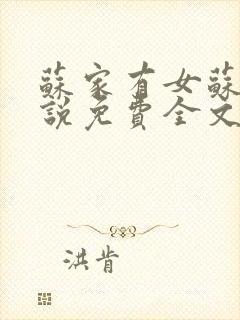 蘇家有女蘇
說免費全文
洪肯